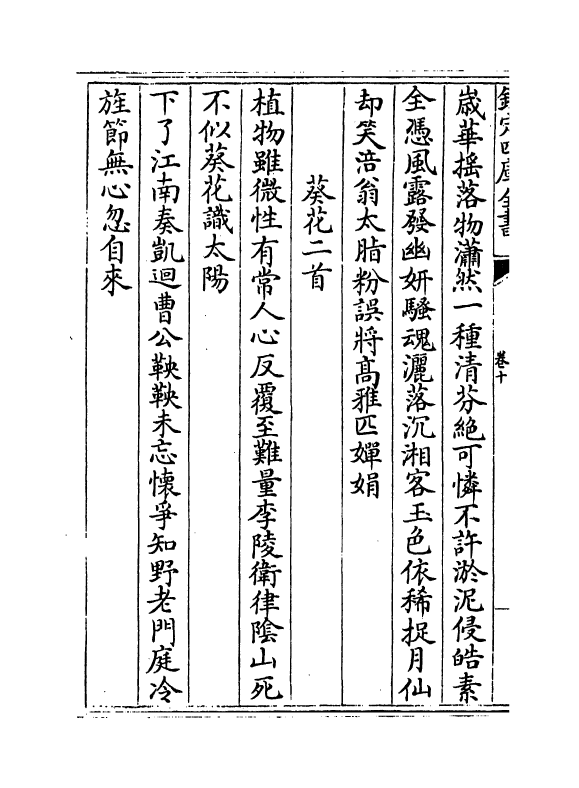 欽定四庫全書
卷十
歲華搖落物瀟然一種清芬絶可憐不許淤泥侵皓素
全憑風露發幽妍騷魂灑落沉湘客玉色依稀捉月仙
却笑涪翁太脂粉誤將高雅匹嬋娟
葵花二首
植物雖微性有常人心反覆至難量李陵衛律陰山死
不似葵花識太陽
下了江南奏凱迴曹公鞅鞅未忘懷爭知野老門庭冷
旌節無心忽自來